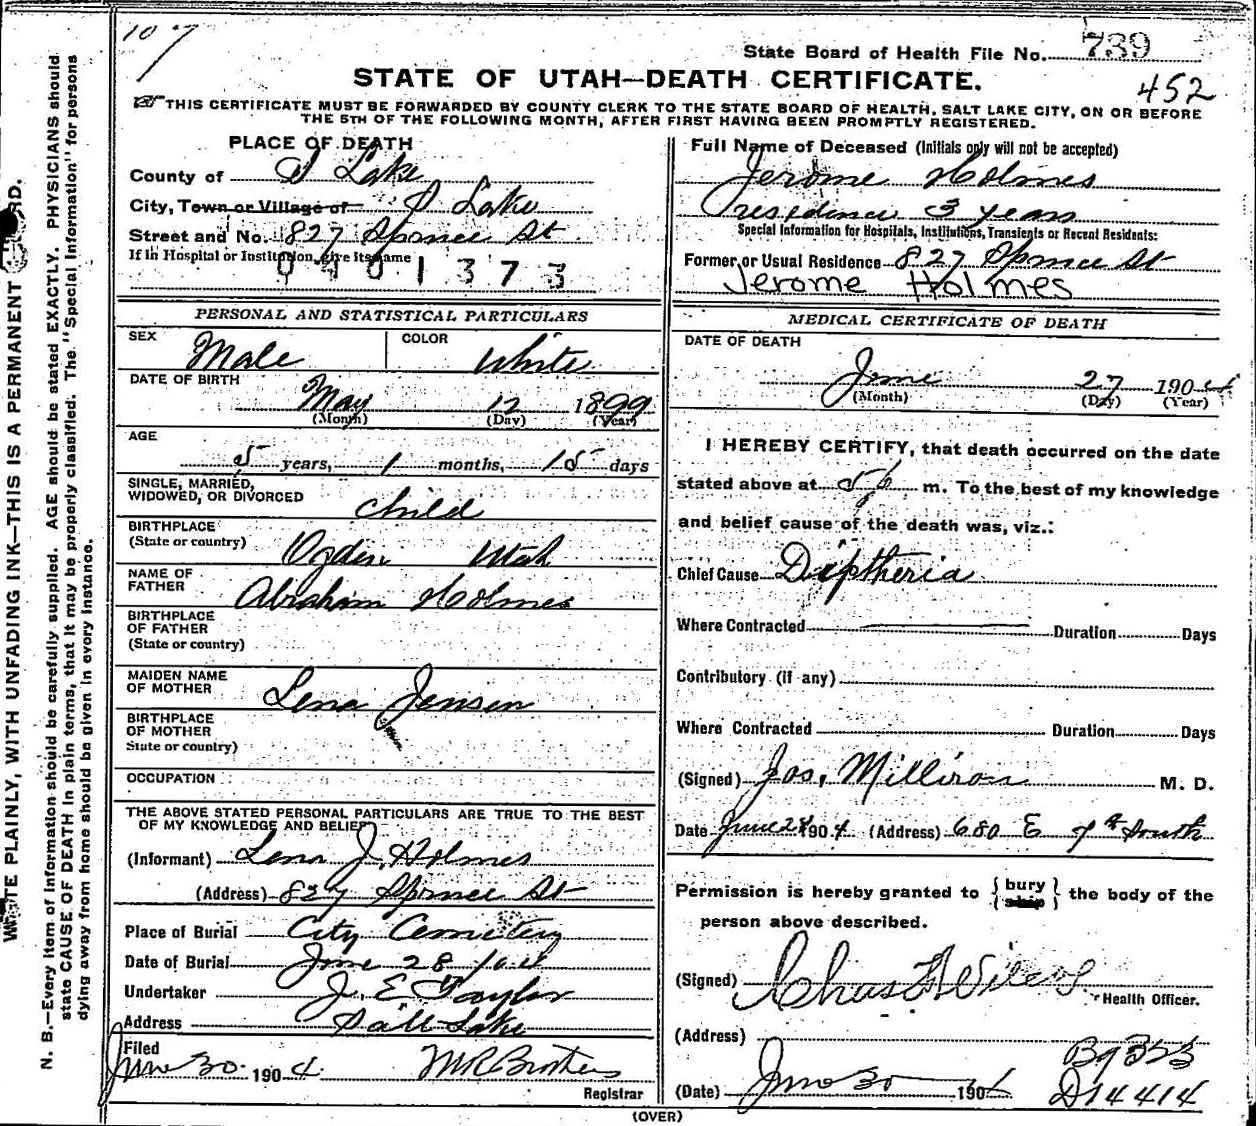 107
State Board of Health File No. 739
STATE OF UTAH—DEATH CERTIFICATE.
452
THIS CERTIFICATE MUST BE FORWARDED BY COUNTY CLERK TO THE STATE BOARD OF HEALTH, SALT LAKE CITY, ON OR BEFORE
THE 5TH OF THE FOLLOWING MONTH, AFTER FIRST HAVING BEEN PROMPTLY REGISTERED.
PLACE OF DEATH
County of S Lake
City, Town or Village of S Lake
Street and No. 827 Spruce St
If in Hospital or Institution, give its name
0401373
Full Name of Deceased (Initials only will not be accepted)
Jerome Holmes
residence 3 years
Special Information for Hospitals, Institutions, Transients or Recent Residents:
Former or Usual Residence 827 Spruce St
Jerome Holmes
PERSONAL AND STATISTICAL PARTICULARS
SEX Male COLOR White
DATE OF BIRTH May 12 1899
(Month) (Day) (Year)
AGE
5 years, 1 months, 15 days
SINGLE, MARRIED,
WIDOWED, OR DIVORCED Child
BIRTHPLACE
(State or country) Ogden Utah
NAME OF
FATHER Abraham Holmes
BIRTHPLACE
OF FATHER
(State or country)
MAIDEN NAME
OF MOTHER Lena Jensen
BIRTHPLACE
OF MOTHER
State or country)
OCCUPATION
THE ABOVE STATED PERSONAL PARTICULARS ARE TRUE TO THE BEST
OF MY KNOWLEDGE AND BELIEF
(Informant) Lena J. Holmes
(Address) 827 Spruce St
Place of Burial City Cemetery
Date of Burial June 28 1904
Undertaker J. E. Taylor
Address Salt Lake
Filed
June 30 1904
Registrar
MEDICAL CERTIFICATE OF DEATH
DATE OF DEATH
June 27 1904
(Month) (Day) (Year)
I HEREBY CERTIFY, that death occurred on the date
stated above at 5 m. To the best of my knowledge
and belief cause of the death was, viz.:
Chief Cause Diptheria
Where Contracted Duration Days
Contributory (if any)
Where Contracted Duration Days
(Signed) Jos. Milliron M. D.
Date June 28 1904 (Address) 680 E 7th South
Permission is hereby granted to {bury ship} the body of the
person above described.
(Signed) Chas Health Officer.
(Address)
B9353
(Date) June 30 1904
D14414
(OVER)
WRITE PLAINLY, WITH UNFADING INK—THIS IS A PERMANENT RECORD.
N. B.—Every item of information should be carefully supplied. AGE should be stated EXACTLY. PHYSICIANS should
state CAUSE OF DEATH in plain terms, that it may be properly classified. The "Special Information" for persons
dying away from home should be given in every instance.